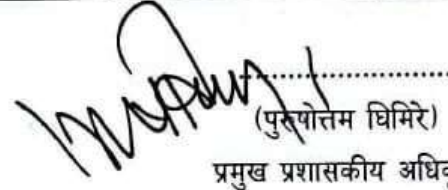 (पुरुषोत्तम घिमिरे)
प्रमुख प्रशासकीय